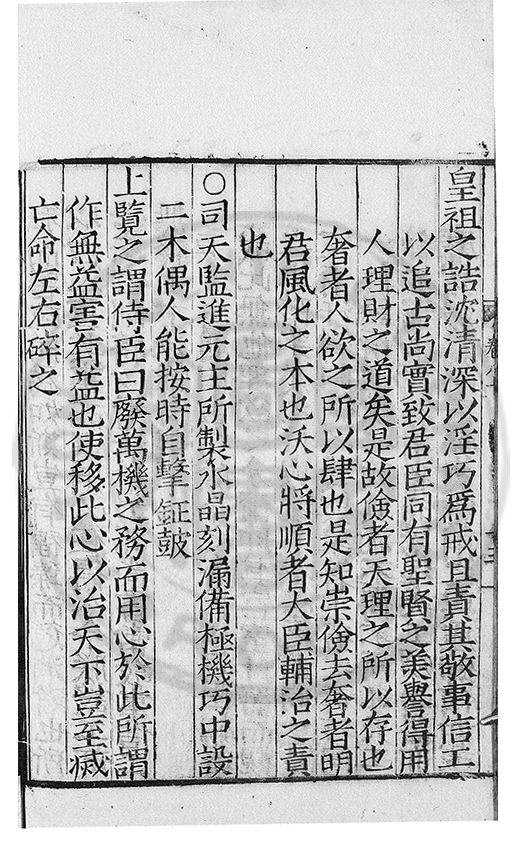 皇祖之誥沈清深以淫巧爲戒且責其敬事信工
以追古尚實致君臣同有聖賢之美譽得用
人理財之道矣是故儉者天理之所以存也
奢者人欲之所以肆也是知崇儉去奢者明
君風化之本也沃心將順者大臣輔治之責
也
○司天監進元主所製水晶刻漏備極機巧中設
二木偶人能按時自擊鉦鼓
上覽之謂侍臣曰廢萬機之務而用心於此所謂
作無益害有益也使移此心以治天下豈至滅
亡命左右碎之